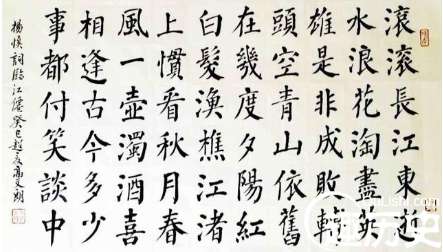 滾滾長江東逝
水浪花淘盡英
雄是非成敗轉
頭空青山依舊
在幾度夕陽紅
白髮漁樵江渚
上慣看秋月春
風一壺濁酒喜
相逢古今多少
事都付笑談中
楊慎詞臨江僊癸巳